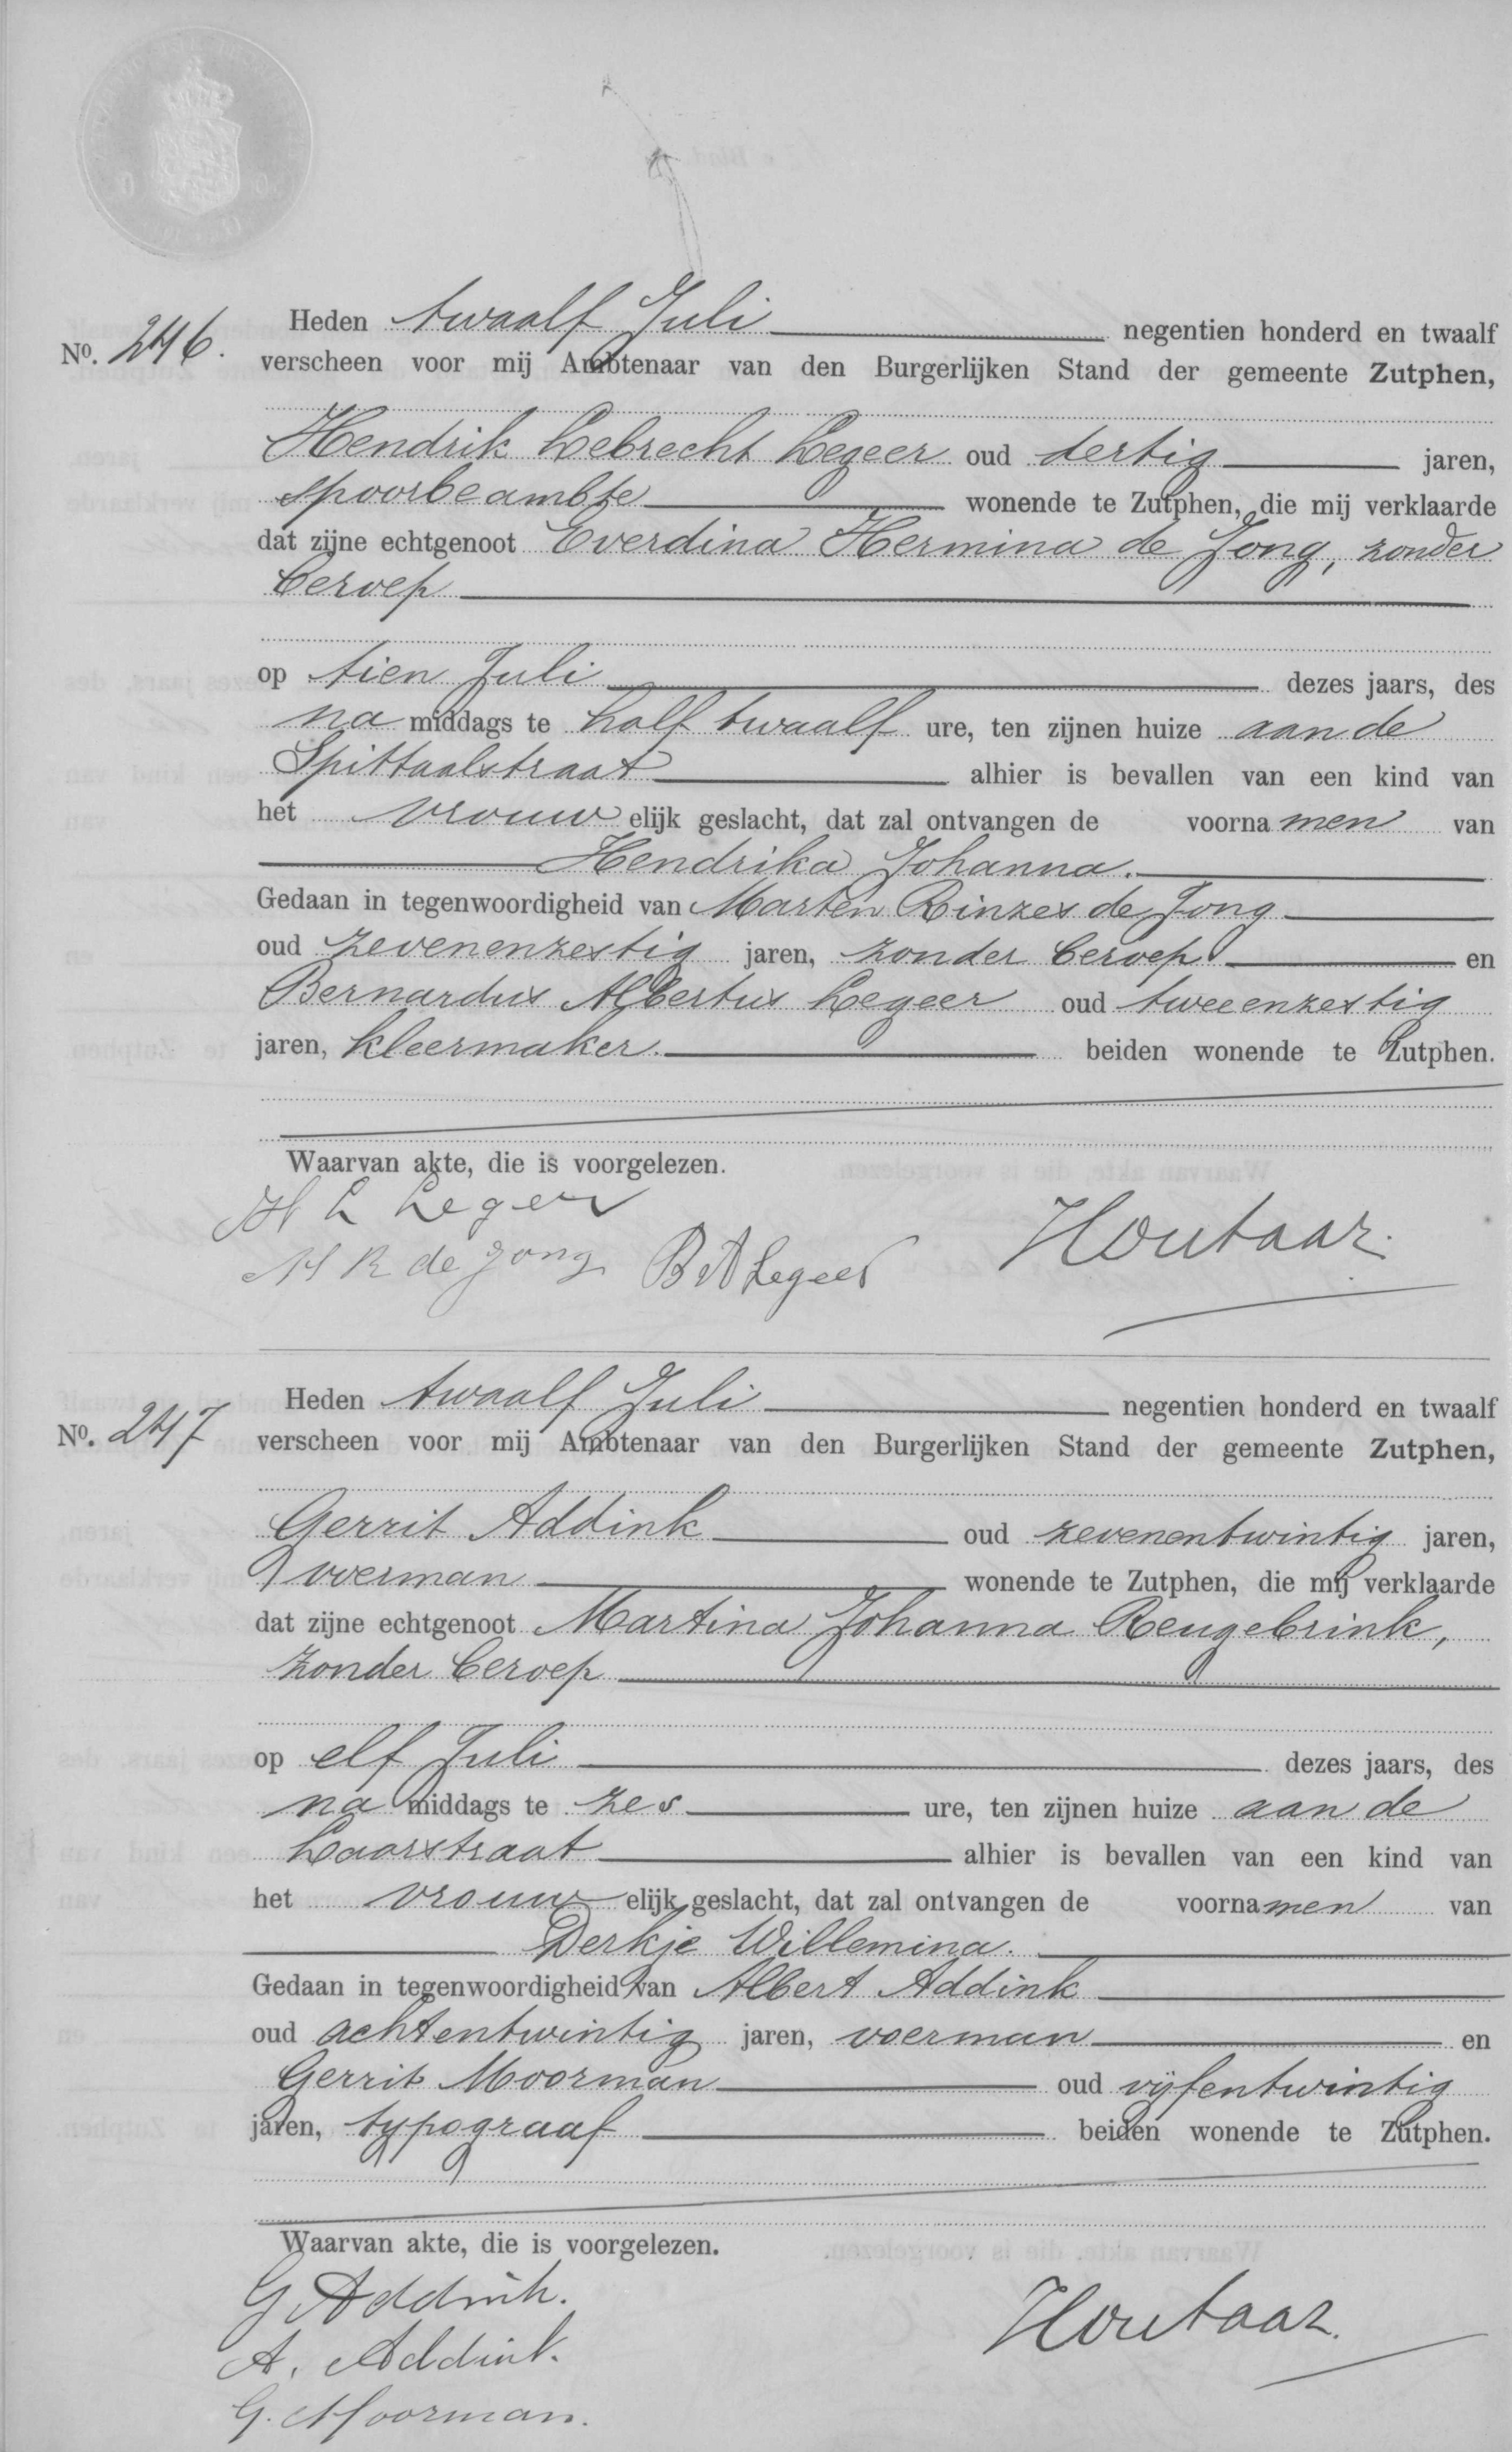 Heden twaalf Juli negentien honderd en twaalf
No. 246. verscheen voor mij Ambtenaar van den Burgerlijken Stand der gemeente Zutphen,
Hendrik Lebrecht Legeer oud dertig jaren,
spoorbeambte wonende te Zutphen, die mij verklaarde
dat zijne echtgenoot Everdina Hermina de Jong, zonder
beroep
op tien Juli dezes jaars, des
na middags te half twaalf ure, ten zijnen huize aan de
Spittaalstraat alhier is bevallen van een kind van
het vrouw elijk geslacht, dat zal ontvangen de voorna men van
Hendrika Johanna.
Gedaan in tegenwoordigheid van Marten Rinzes de Jong
oud zevenenzestig jaren, zonder beroep en
Bernardus Albertus Legeer oud tweeenzestig
jaren, kleermaker. beiden wonende te Zutphen.
Waarvan akte, die is voorgelezen.
H L Legeer
M R de Jong BA Legeer Houtaar.
Heden twaalf Juli negentien honderd en twaalf
No. 247 verscheen voor mij Ambtenaar van den Burgerlijken Stand der gemeente Zutphen,
Gerrit Addink oud zevenentwintig jaren,
voerman wonende te Zutphen, die mij verklaarde
dat zijne echtgenoot Martina Johanna Reugebrink,
zonder beroep
op elf Juli dezes jaars, des
na middags te zes ure, ten zijnen huize aan de
Laarstraat alhier is bevallen van een kind van
het vrouw elijk geslacht, dat zal ontvangen de voornamen van
Derkje Willemina.
Gedaan in tegenwoordigheid van Albert Addink
oud achtentwintig jaren, voerman en
Gerrit Moorman oud vijfentwintig
jaren, typograaf beiden wonende te Zutphen.
Waarvan akte, die is voorgelezen.
G Addink.
A. Addink. Houtaar.
G. Moorman.